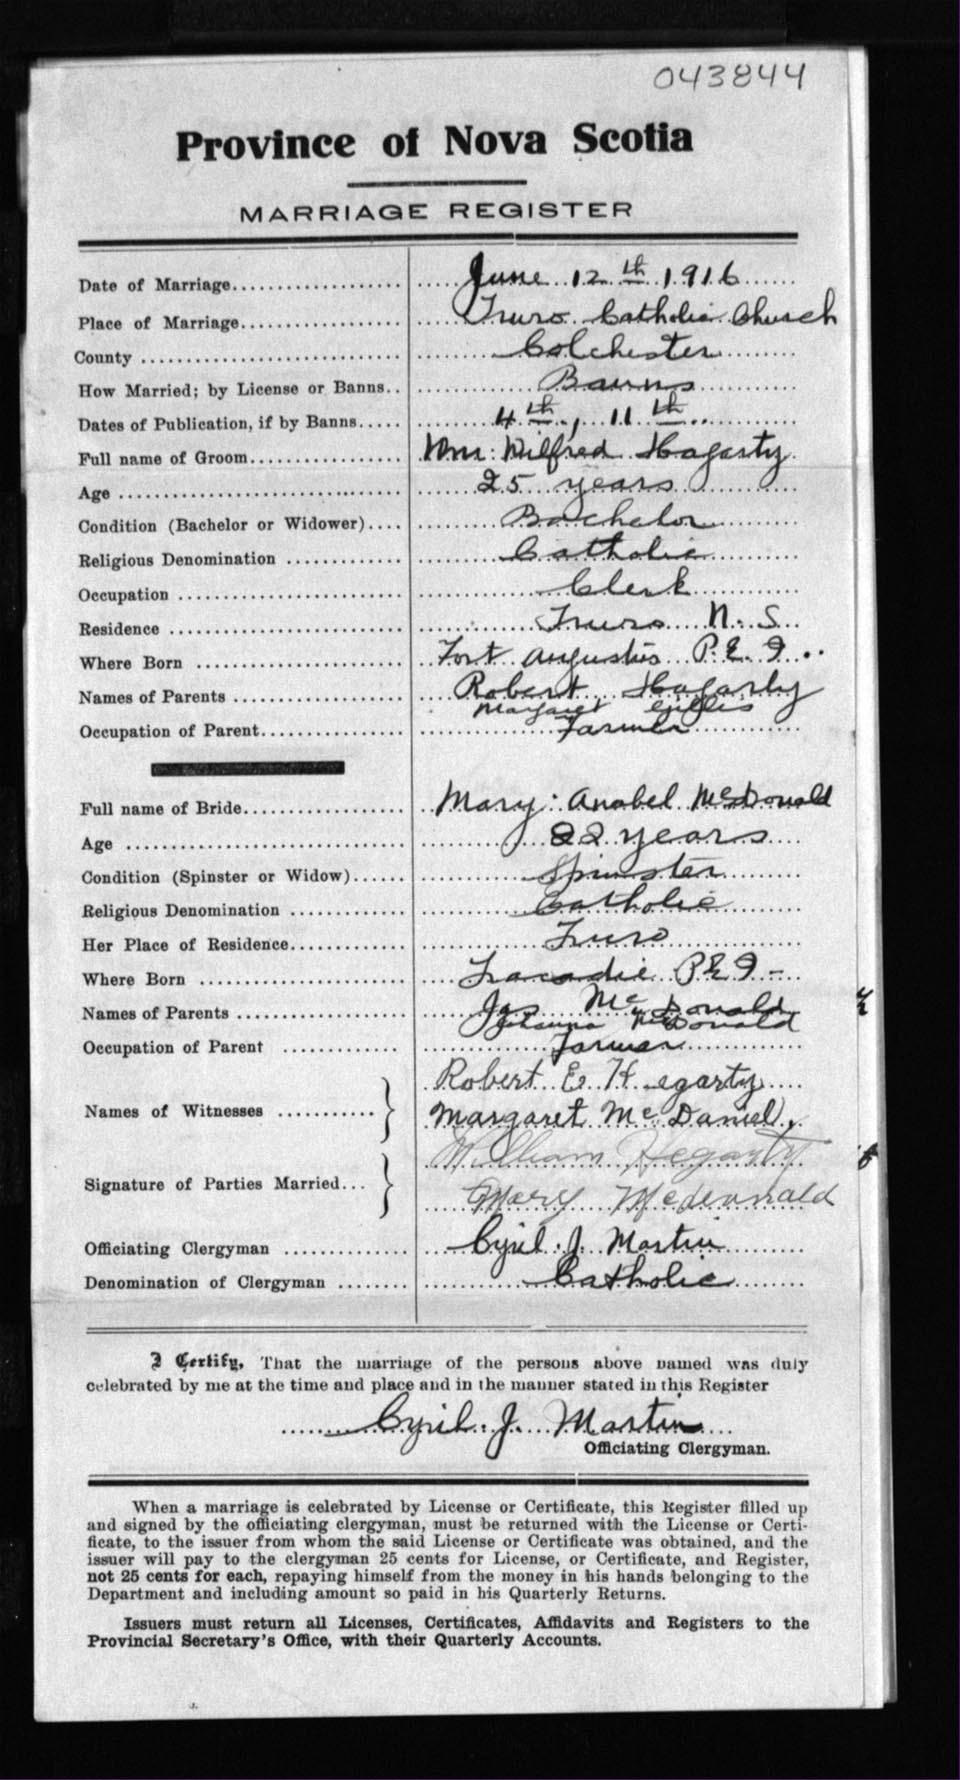 043844
Province of Nova Scotia
MARRIAGE REGISTER
Date of Marriage.................... June 12th 1916
Place of Marriage................... Truro Catholic Church
County .............................. Colchester
How Married; by License or Banns.. Banns
Dates of Publication, if by Banns..... 4th, 11th
Full name of Groom.................. Wm: Wilfred Hagarty
Age .................................. 25 years
Condition (Bachelor or Widower).... Bachelor
Religious Denomination ............. Catholic
Occupation .......................... Clerk
Residence ........................... Truro N. S.
Where Born ......................... Fort Augustus P.E.I..
Names of Parents ................... Robert Hagarty
Margaret Gillis
Occupation of Parent................ Farmer
Full name of Bride................... Mary: Anabel McDonald
Age .................................. 22 years
Condition (Spinster or Widow)...... Spinster
Religious Denomination ............. Catholic
Her Place of Residence............. Truro
Where Born ......................... Tracadie P.E.I-
Names of Parents ................... Jas McDonald
Johanna McDonald
Occupation of Parent ............. Farmer
Names of Witnesses ........... } Robert E. Hegarty
Margaret McDaniel,
Signature of Parties Married... } William Hegarty
Mary Mcdonnald
Officiating Clergyman .............. Cyril. J. Martin
Denomination of Clergyman ........ Catholic
I Certify, That the marriage of the persons above named was duly
celebrated by me at the time and place and in the manner stated in this Register
Cyril. J. Martin
Officiating Clergyman.
When a marriage is celebrated by License or Certificate, this Register filled up
and signed by the officiating clergyman, must be returned with the License or Certi-
ficate, to the issuer from whom the said License or Certificate was obtained, and the
issuer will pay to the clergyman 25 cents for License, or Certificate, and Register,
not 25 cents for each, repaying himself from the money in his hands belonging to the
Department and including amount so paid in his Quarterly Returns.
Issuers must return all Licenses, Certificates, Affidavits and Registers to the
Provincial Secretary's Office, with their Quarterly Accounts.